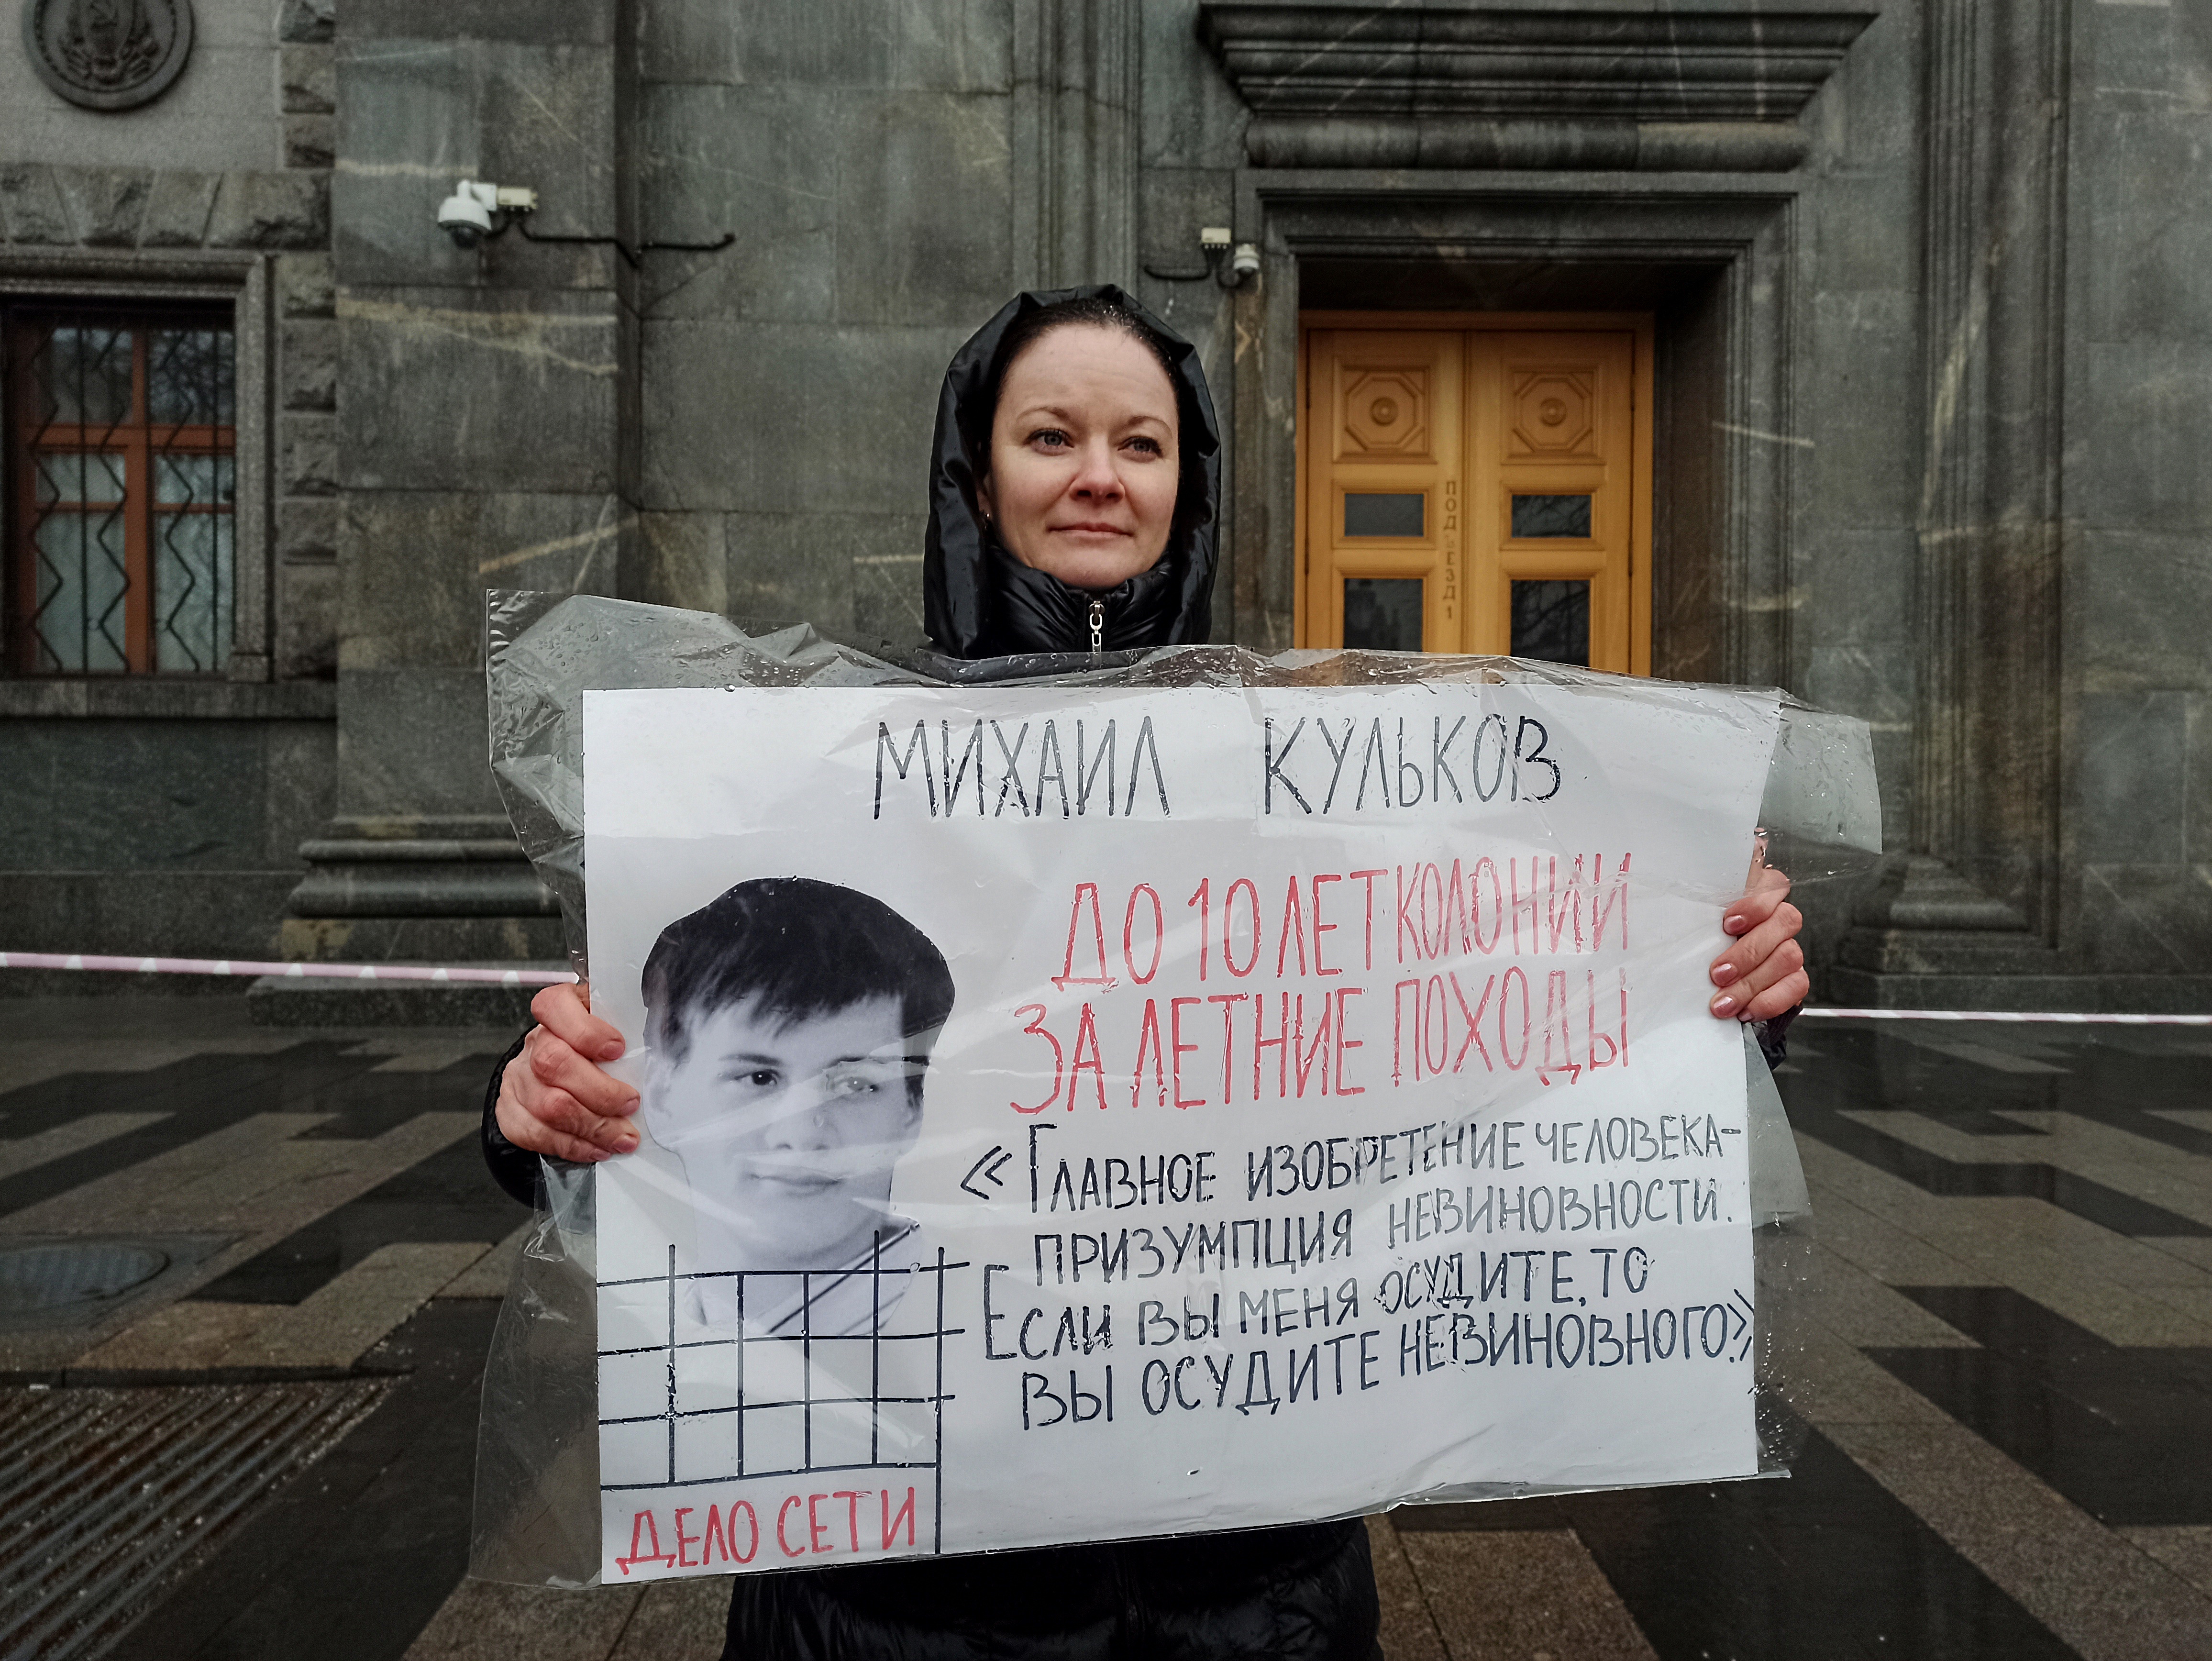 ПОДЪЕЗД 1
МИХАИЛ КУЛЬКОВ
ДО 10 ЛЕТ КОЛОНИИ
ЗА ЛЕТНИЕ ПОХОДЫ
«ГЛАВНОЕ ИЗОБРЕТЕНИЕ ЧЕЛОВЕКА-
ПРИЗУМПЦИЯ НЕВИНОВНОСТИ.
ЕСЛИ ВЫ МЕНЯ ОСУДИТЕ, ТО
ВЫ ОСУДИТЕ НЕВИНОВНОГО.»
ДЕЛО СЕТИ